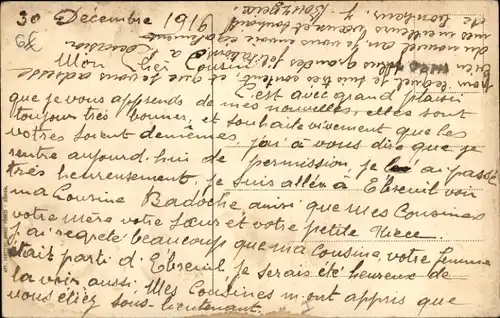 30 Décembre 1916
Mon Cher Cousin
C'est avec grand plaisir
que je vous apprends de mes nouvelles, elles sont
toujour très bonnes, et souhaite vivement que les
votres soient de mêmes. j'ai à vous dire que je
rentre aujourd'hui de permission, je l'ai passé
très heureusement, je suis allé à Ebreuil voir
ma Cousine Badoche ainsi que mes Cousines
votre mère votre sœur et votre petite Nièce.
j'ai regreté beaucoup que ma cousine votre femme
était parti d'Ebreuil, je serais été heureux de
la voir aussi, Mes Cousines m'ont appris que
vous étiez sous-lieutenant.
pour lequel je suis très content et que je vous adresse
bien grandes félicitations
à l'occasion
du nouvel an je vous envoie également
mes meilleurs vœux et souhaits
de bonheur.